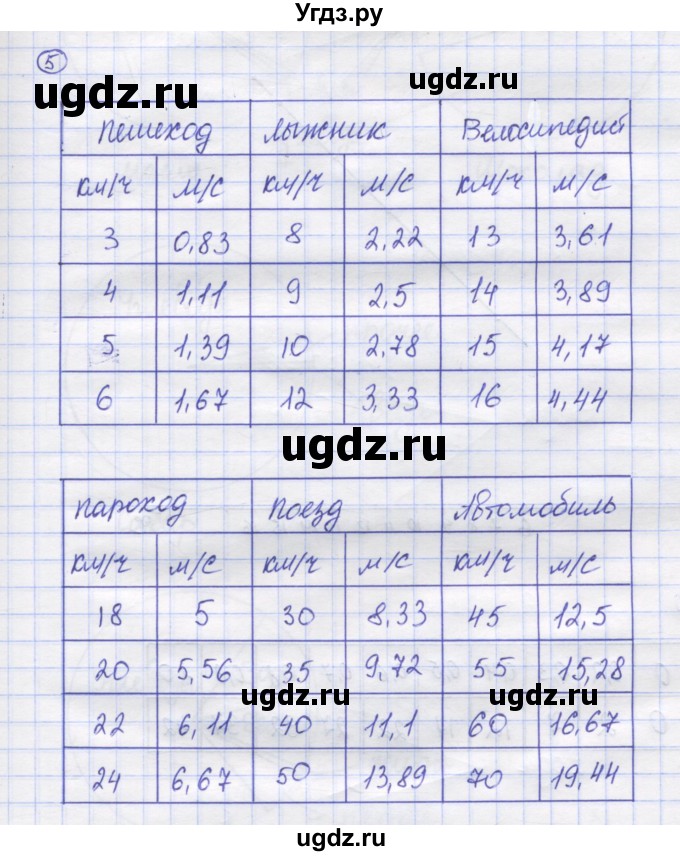 Угдз.ру
5
ugdz.ru
ugdz.ru
Пешеход Лыжник Велосипедист
км/ч м/с км/ч м/с км/ч м/с
3 0,83 8 2,22 13 3,61
4 1,11 9 2,5 14 3,89
5 1,39 10 2,78 15 4,17
6 1,67 12 3,33 16 4,44
ugdz.ru
Пароход Поезд Автомобиль
км/ч м/с км/ч м/с км/ч м/с
18 5 30 8,33 45 12,5
20 5,56 35 9,72 55 15,28
ugdz.ru ugdz.ru
22 6,11 40 11,1 60 16,67
24 6,67 50 13,89 70 19,44
ugdz.ru